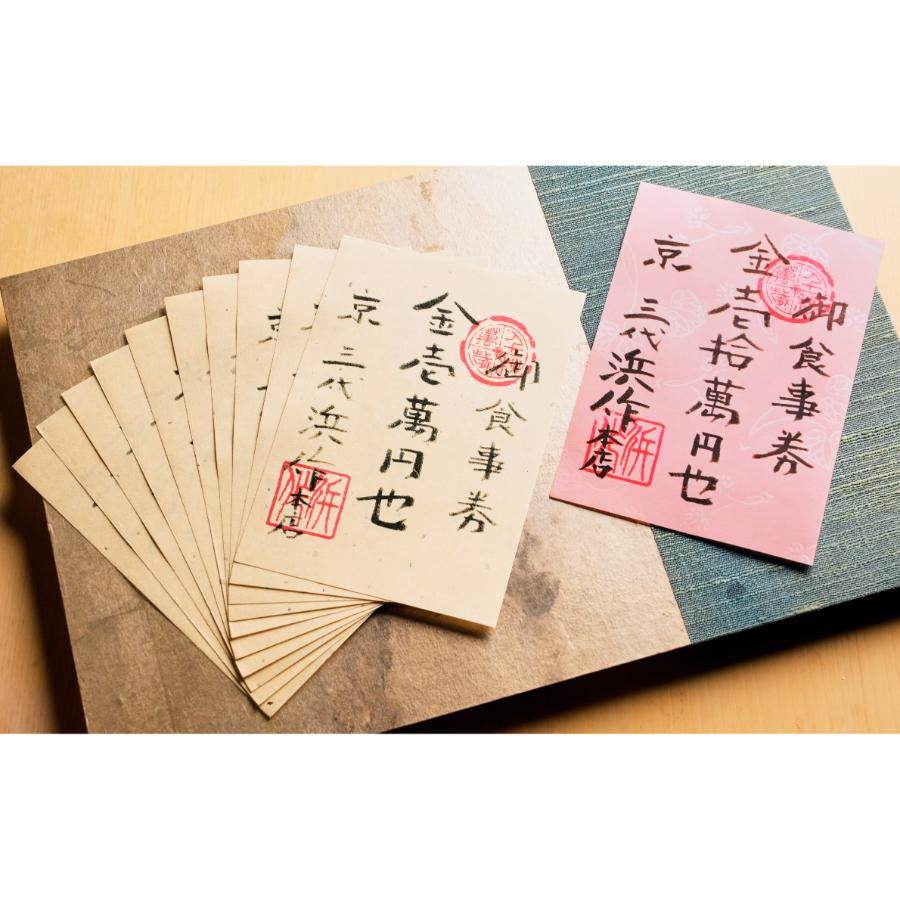 御食事券
金壱萬円也
京 三代浜作本店
御食事券
金壱拾萬円也
京 三代浜作本店
浜